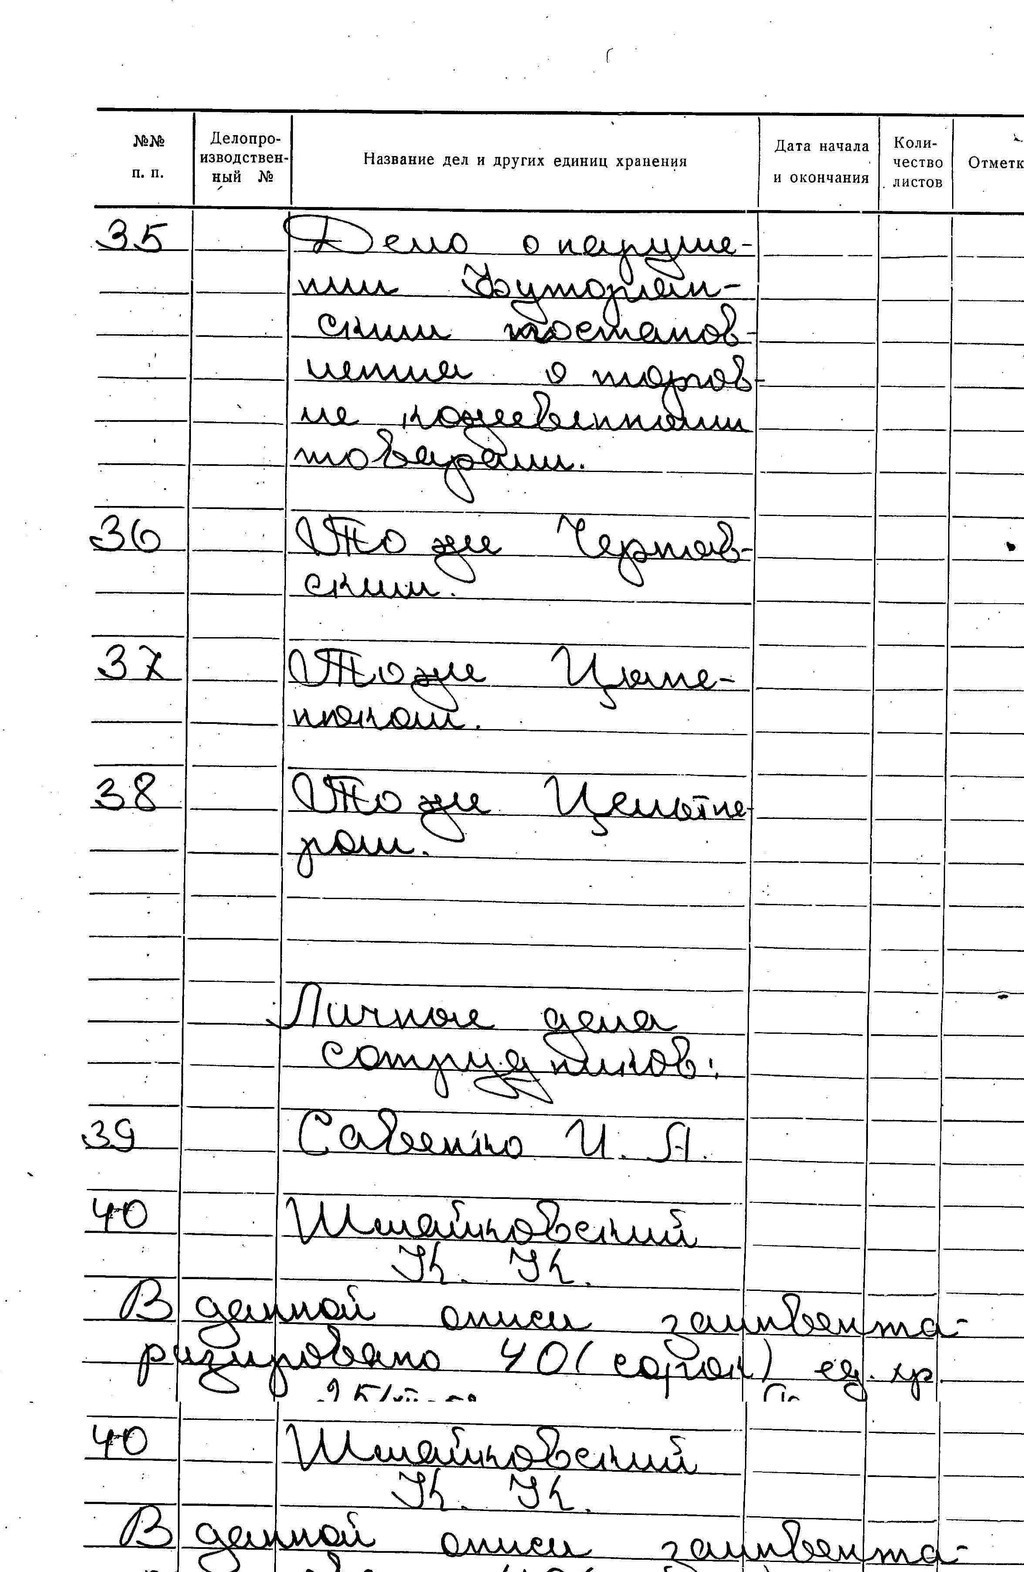 №№ п. п.
Делопро-
изводствен-
ный №
Название дел и других единиц хранения
Дата начала
и окончания
Коли-
чество
листов
Отметк
35 Дело о наруше-
нии
ским постанов-
ления о торгов-
ле кожевенными
товарами.
36 То же Чернов-
ским.
37 То же Цыпе-
нюком.
38 То же
ром.
Личное дела
сотрудников:
39 Савенко И. А.
40 Шмайковский
К. К.
В данной описи заинвента-
ризировано 40 (сорок) ед. хр.
40 Шмайковский
К. К.
В данной описи заинвента-